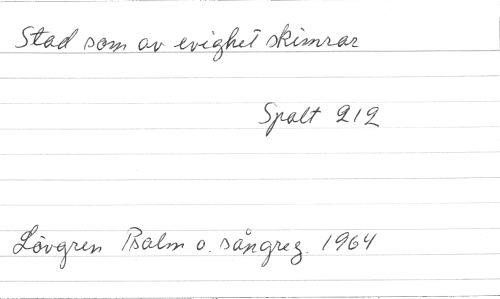 Stad som av evighet skimrar
Spalt 212
Lövgren Psalm o. sångreg. 1964